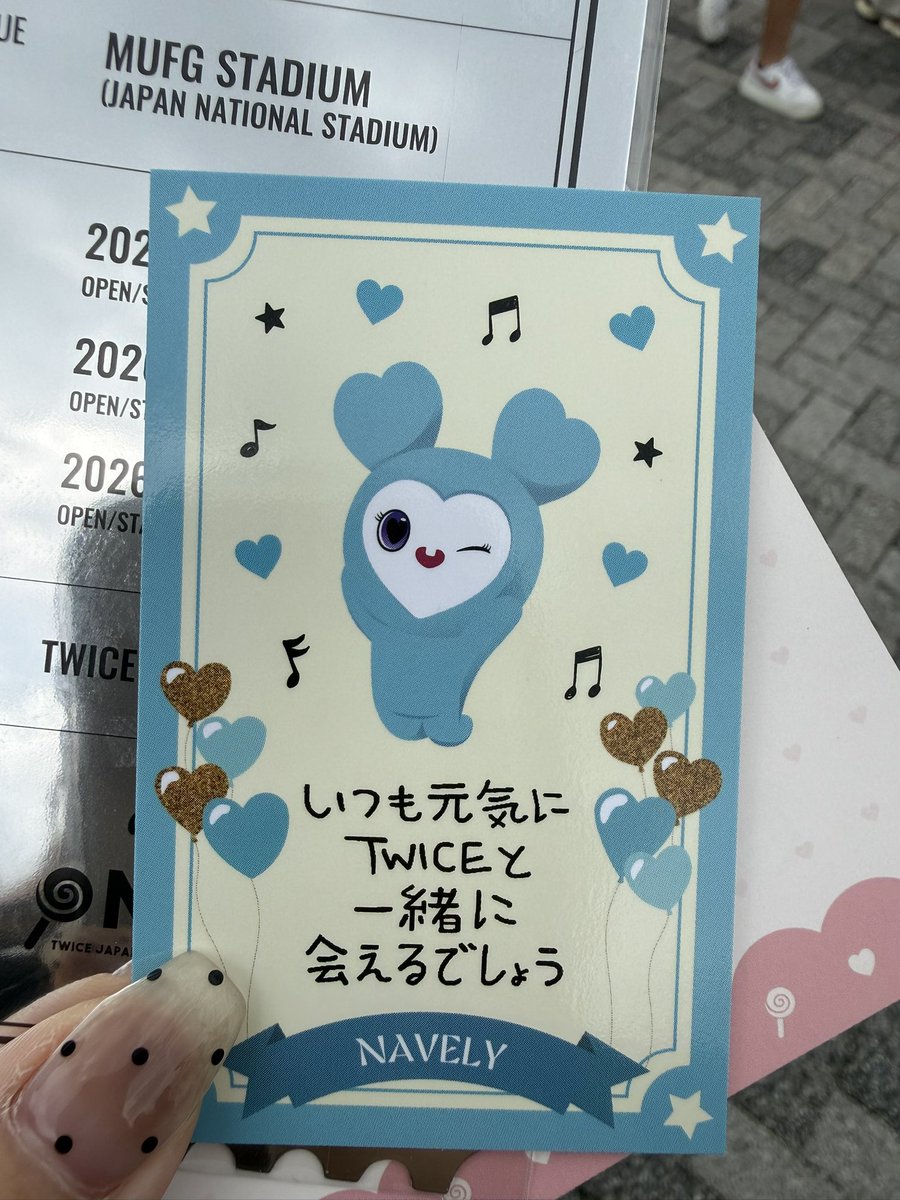 MUFG STADIUM
(JAPAN NATIONAL STADIUM)
OPEN/
OPEN/
2026
OPEN/
TWICE
TWICE JAPAN
いつも元気に
TWICEと
一緒に
会えるでしょう
NAVELY